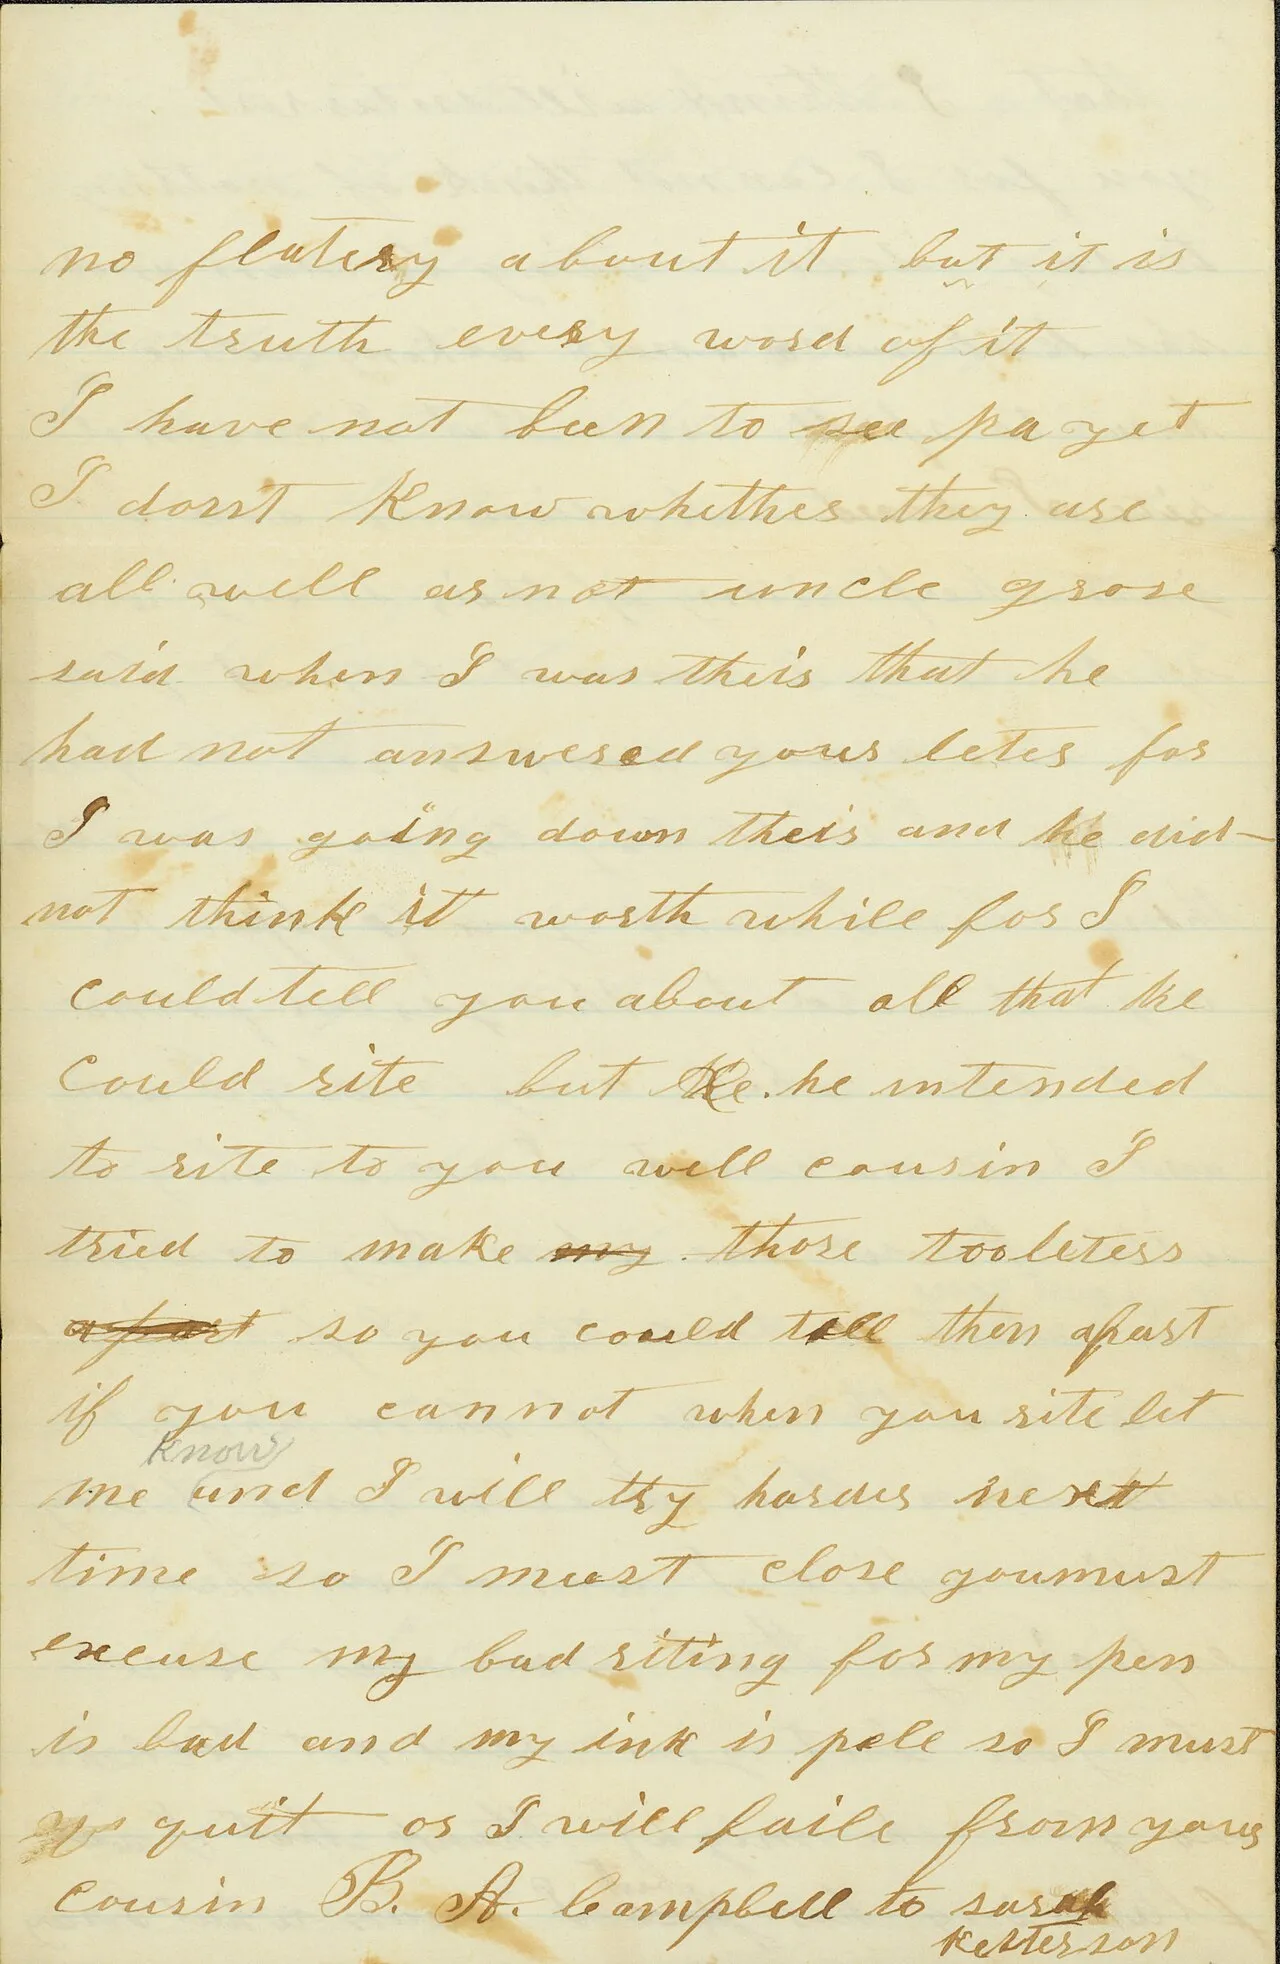 no flatery about it but it is
the truth every word of it
I have not been to see pa yet
I dont know whether they are
all well or not uncle grose
said when I was their that he
had not answered your leter for
I was going down their and he did
not think it worth while for I
could tell you about all that he
could rite but he he intended
to rite to you well cousin I
tried to make my those too leters
apart so you could tell then apart
if you cannot when you rite let
know
me and I will try harder next
time so I must close you must
excuse my bad riting for my pen
is bad and my ink is pale so I must
quit or I will faile from your
cousin B. A. Campbell to sarah
Ketterson